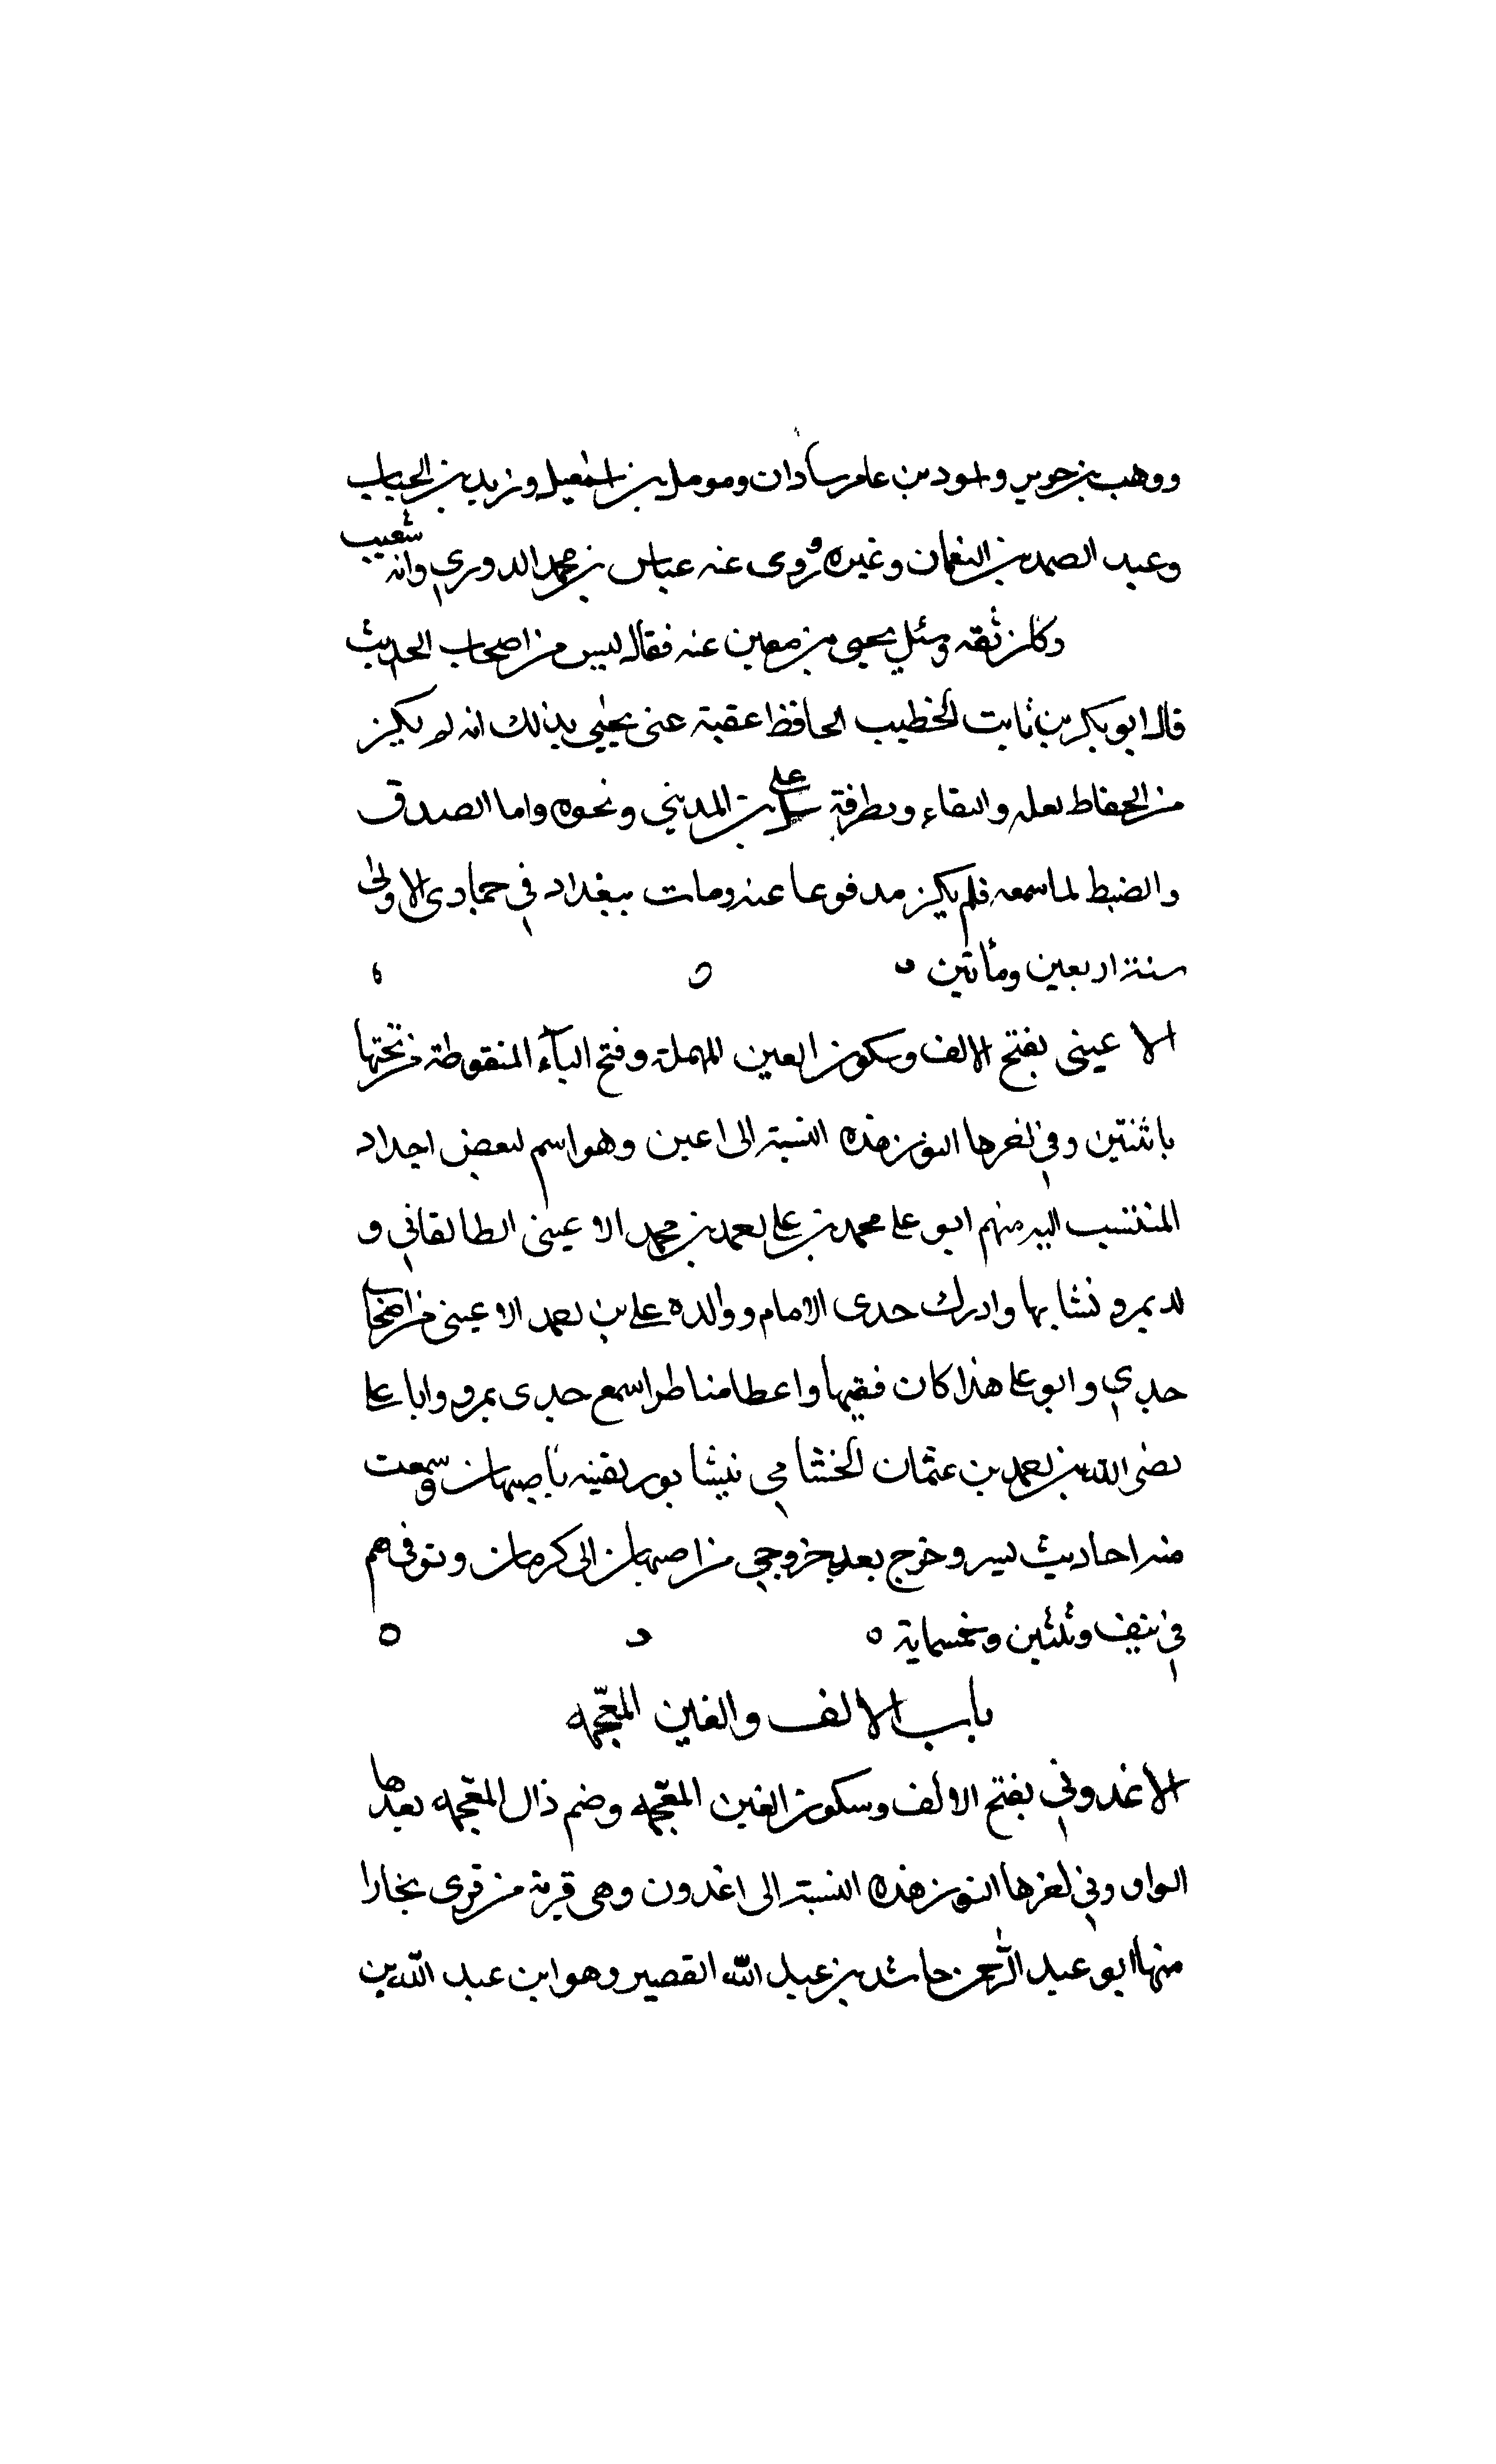 ووهب بن جرير واسود بن عامر شاذان ومومل بن اسمعيل وزيد بن الحباب
وعبد الصمد بن النعمان وغيره روى عنه عباس بن محمد الدوري وابنه شعيب
وكان ثقه وسئل يحيى بن معين عنه فقال ليس من اصحاب الحديث
قال ابو بكر بن ثابت الخطيب الحافظ عقبة عنى يحيى بذلك انه لم يكن
من الحفاظ لعلله والنقاء وبطرقة على بن المديني ونحوه واما الصدق
والضبط لما سمعه فلم يكن مدفوعا عنه ومات ببغداد في جمادى الاولى
سنة اربعين ومأتين
الاعينى بفتح الالف وسكون العين المهملة وفتح الياء المنقوطة من تحتها
باثنتين وفي اخرها النون هذه النسبة الى اعين وهو اسم لبعض اجداد
المنتسب اليه منهم ابو على محمد بن على بن محمد الاعينى الطالقاني و
لد بمرو نشا بها وادرك جدى الامام ووالده على بن محمد الاعينى من اصحاب
جدي وابو على هذا كان فقيها واعظا مناظرا سمع جدى بمرو وابا على
نصر الله بن احمد بن عثمان الخشنامي نيشابور لقيته باصبهان وسمعت
منه احاديث يسيره وخرج بعد خروجي من اصبهان الى كرمان وتوفى هم
في نيف وثلثين وخمسماية
باب الالف والغين المعجمه
الاغدوني بفتح الالف وسكون الغين المعجمه وضم ذال المعجمه بعدها
الواو وفي اخرها النون هذه النسبة الى اغدون وهى قرية من قرى بخارا
منها ابو عبد الرحمن حاشد بن عبد الله القصير وهو ابن عبد الله بن